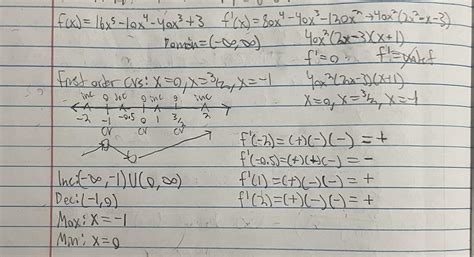 f(x)=16x⁵-10x⁴-40x³+3 f'(x)=80x⁴-40x³-120x²→40x²(2x²-x-3)
Domain=(-∞,∞) 40x²(2x-3)(x+1)
f'=0 f'=undef
First order CVs: x=0, x=3/2, x=-1 40x²(2x-3)(x+1)
x=0, x=3/2, x=-1
inc 0 dec 0 inc 0 inc
-2 -1 -0.5 0 1 3/2 2
CV CV CV
f'(-2)=(+)(-)(-)=+
f'(-0.5)=(+)(+)(-)=-
Inc: (-∞,-1)U(0,∞) f'(1)=(+)(-)(-)=+
Dec: (-1,0) f'(2)=(+)(-)(-)=+
Max: x=-1
Min: x=0